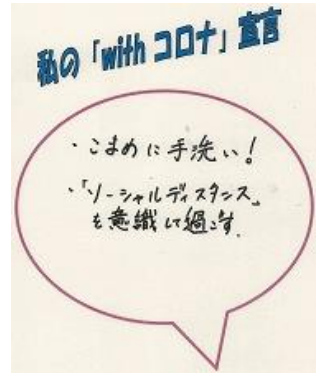 私の「withコロナ」宣言
・こまめに手洗い!
・「ソーシャルディスタンス」
を意識して過ごす.